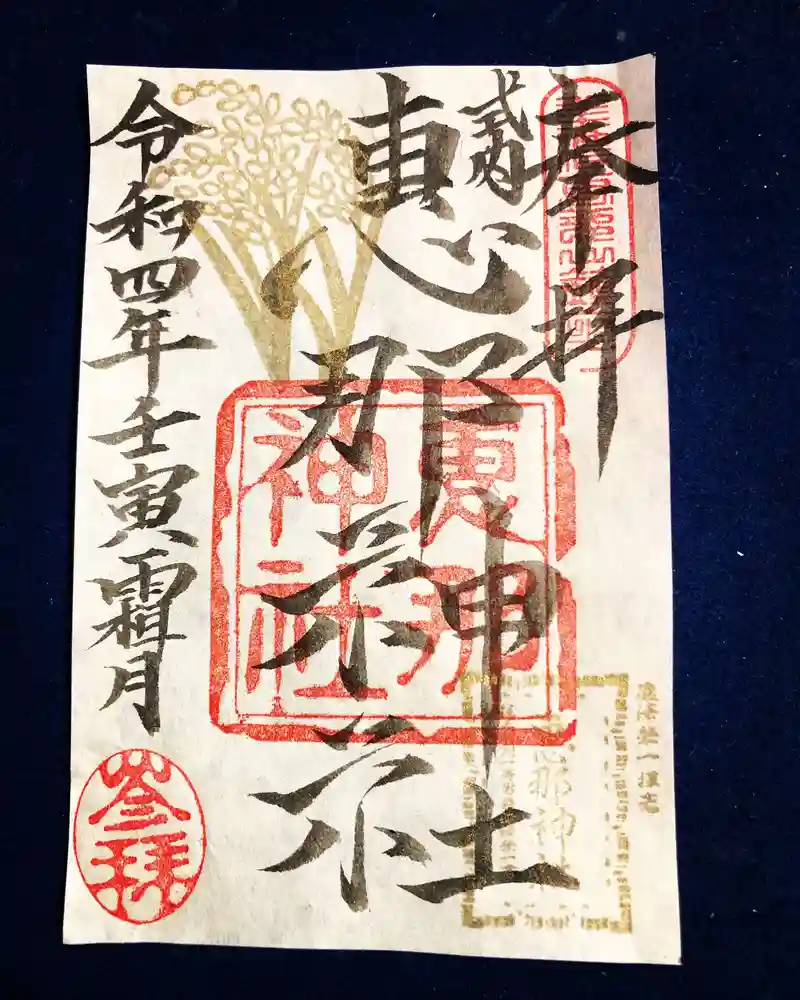 奉拝
式内
恵那神社
恵那神社
恵那神社
令和四年壬寅霜月
参拝